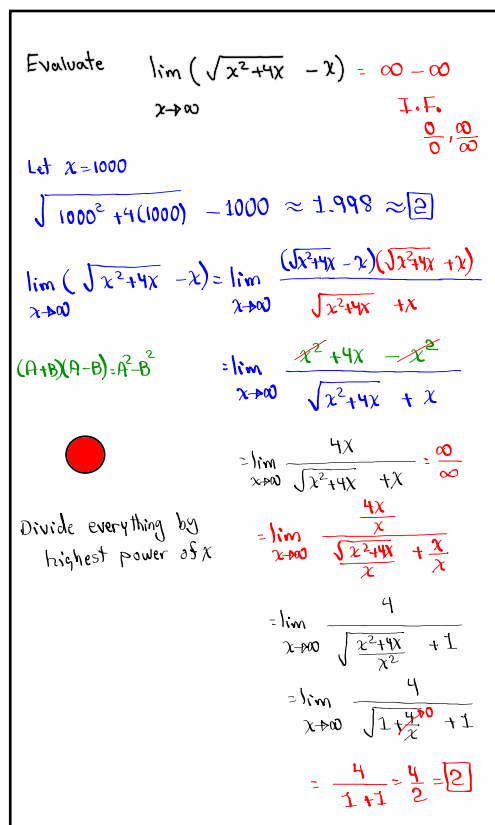 Evaluate lim x→∞ (√(x²+4x) - x) = ∞ - ∞
I.F.
0/0, ∞/∞
Let x=1000
√(1000²+4(1000)) - 1000 ≈ 1.998 ≈ 2
lim x→∞ (√(x²+4x) - x) = lim x→∞ (√(x²+4x) - x)(√(x²+4x) + x) / (√(x²+4x) + x)
(A+B)(A-B)=A²-B² = lim x→∞ (x²+4x - x²) / (√(x²+4x) + x)
= lim x→∞ 4x / (√(x²+4x) + x) = ∞/∞
Divide everything by
highest power of x = lim x→∞ (4x/x) / (√(x²+4x)/x + x/x)
= lim x→∞ 4 / (√((x²+4x)/x²) + 1)
= lim x→∞ 4 / (√(1+4/x→0) + 1)
= 4/(1+1) = 4/2 = 2